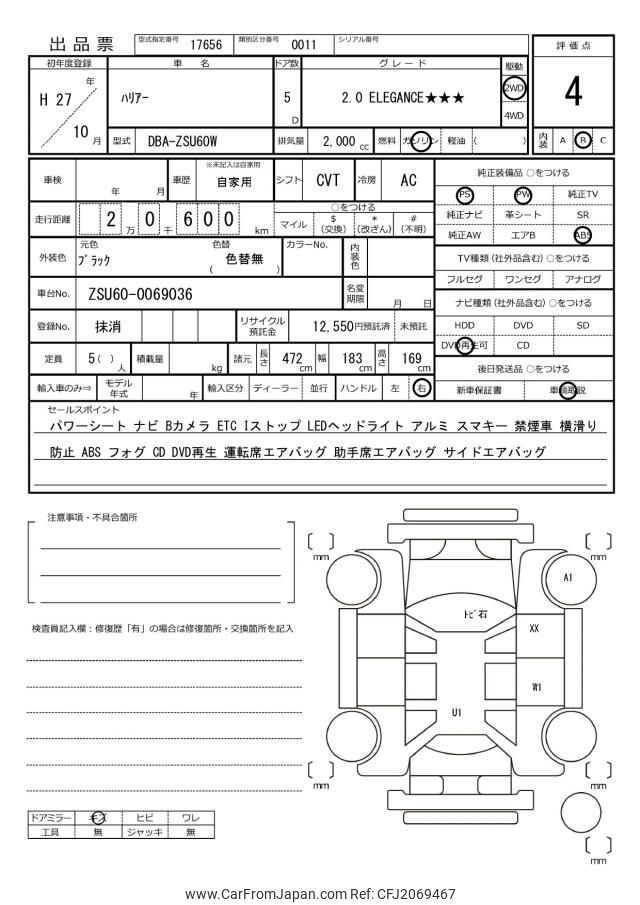 出品票 型式指定番号 17656 類別区分番号 0011 シリアル番号
評価点
4
内装 A B C
初年度登録 車名 ドア数 グレード 駆動
H 27 年 ハリアー 5 D 2.0 ELEGANCE★★★ 2WD
4WD
10 月 型式 DBA-ZSU60W 排気量 2,000 cc 燃料 ガソリン 軽油 ( )
車検 年 月 車歴 ※未記入は自家用 自家用 シフト CVT 冷房 AC
走行距離 2 万 0 千 6 0 0 km
○をつける
マイル $ (交換) * (改ざん) # (不明)
外装色 元色 ブラック 色替 ( 色替無 ) カラーNo. 内装色
車台No. ZSU60-0069036 名変期限 月 日
登録No. 抹消 リサイクル預託金 12,550円預託済 未預託
定員 5 ( ) 人 積載量 kg 諸元 長さ 472 cm 幅 183 cm 高さ 169 cm
輸入車のみ⇒ モデル年式 年 輸入区分 ディーラー 並行 ハンドル 左 右
純正装備品 ○をつける
PS PW 純正TV
純正ナビ 革シート SR
純正AW エアB ABS
TV種類 (社外品含む) ○をつける
フルセグ ワンセグ アナログ
ナビ種類 (社外品含む) ○をつける
HDD DVD SD
DVD再生可 CD
後日発送品 ○をつける
新車保証書 車輌取説
セールスポイント
パワーシート ナビ Bカメラ ETC Iストップ LEDヘッドライト アルミ スマキー 禁煙車 横滑り
防止 ABS フォグ CD DVD再生 運転席エアバッグ 助手席エアバッグ サイドエアバッグ
注意事項・不具合箇所
検査員記入欄：修復歴「有」の場合は修復箇所・交換箇所を記入
[ ] mm
[ ] mm
A1
トビ石
XX
W1
U1
[ ] mm
[ ] mm
[ ] mm
ドアミラー キズ ヒビ ワレ
工具 無 ジャッキ 無
www.CarFromJapan.com Ref: CFJ2069467